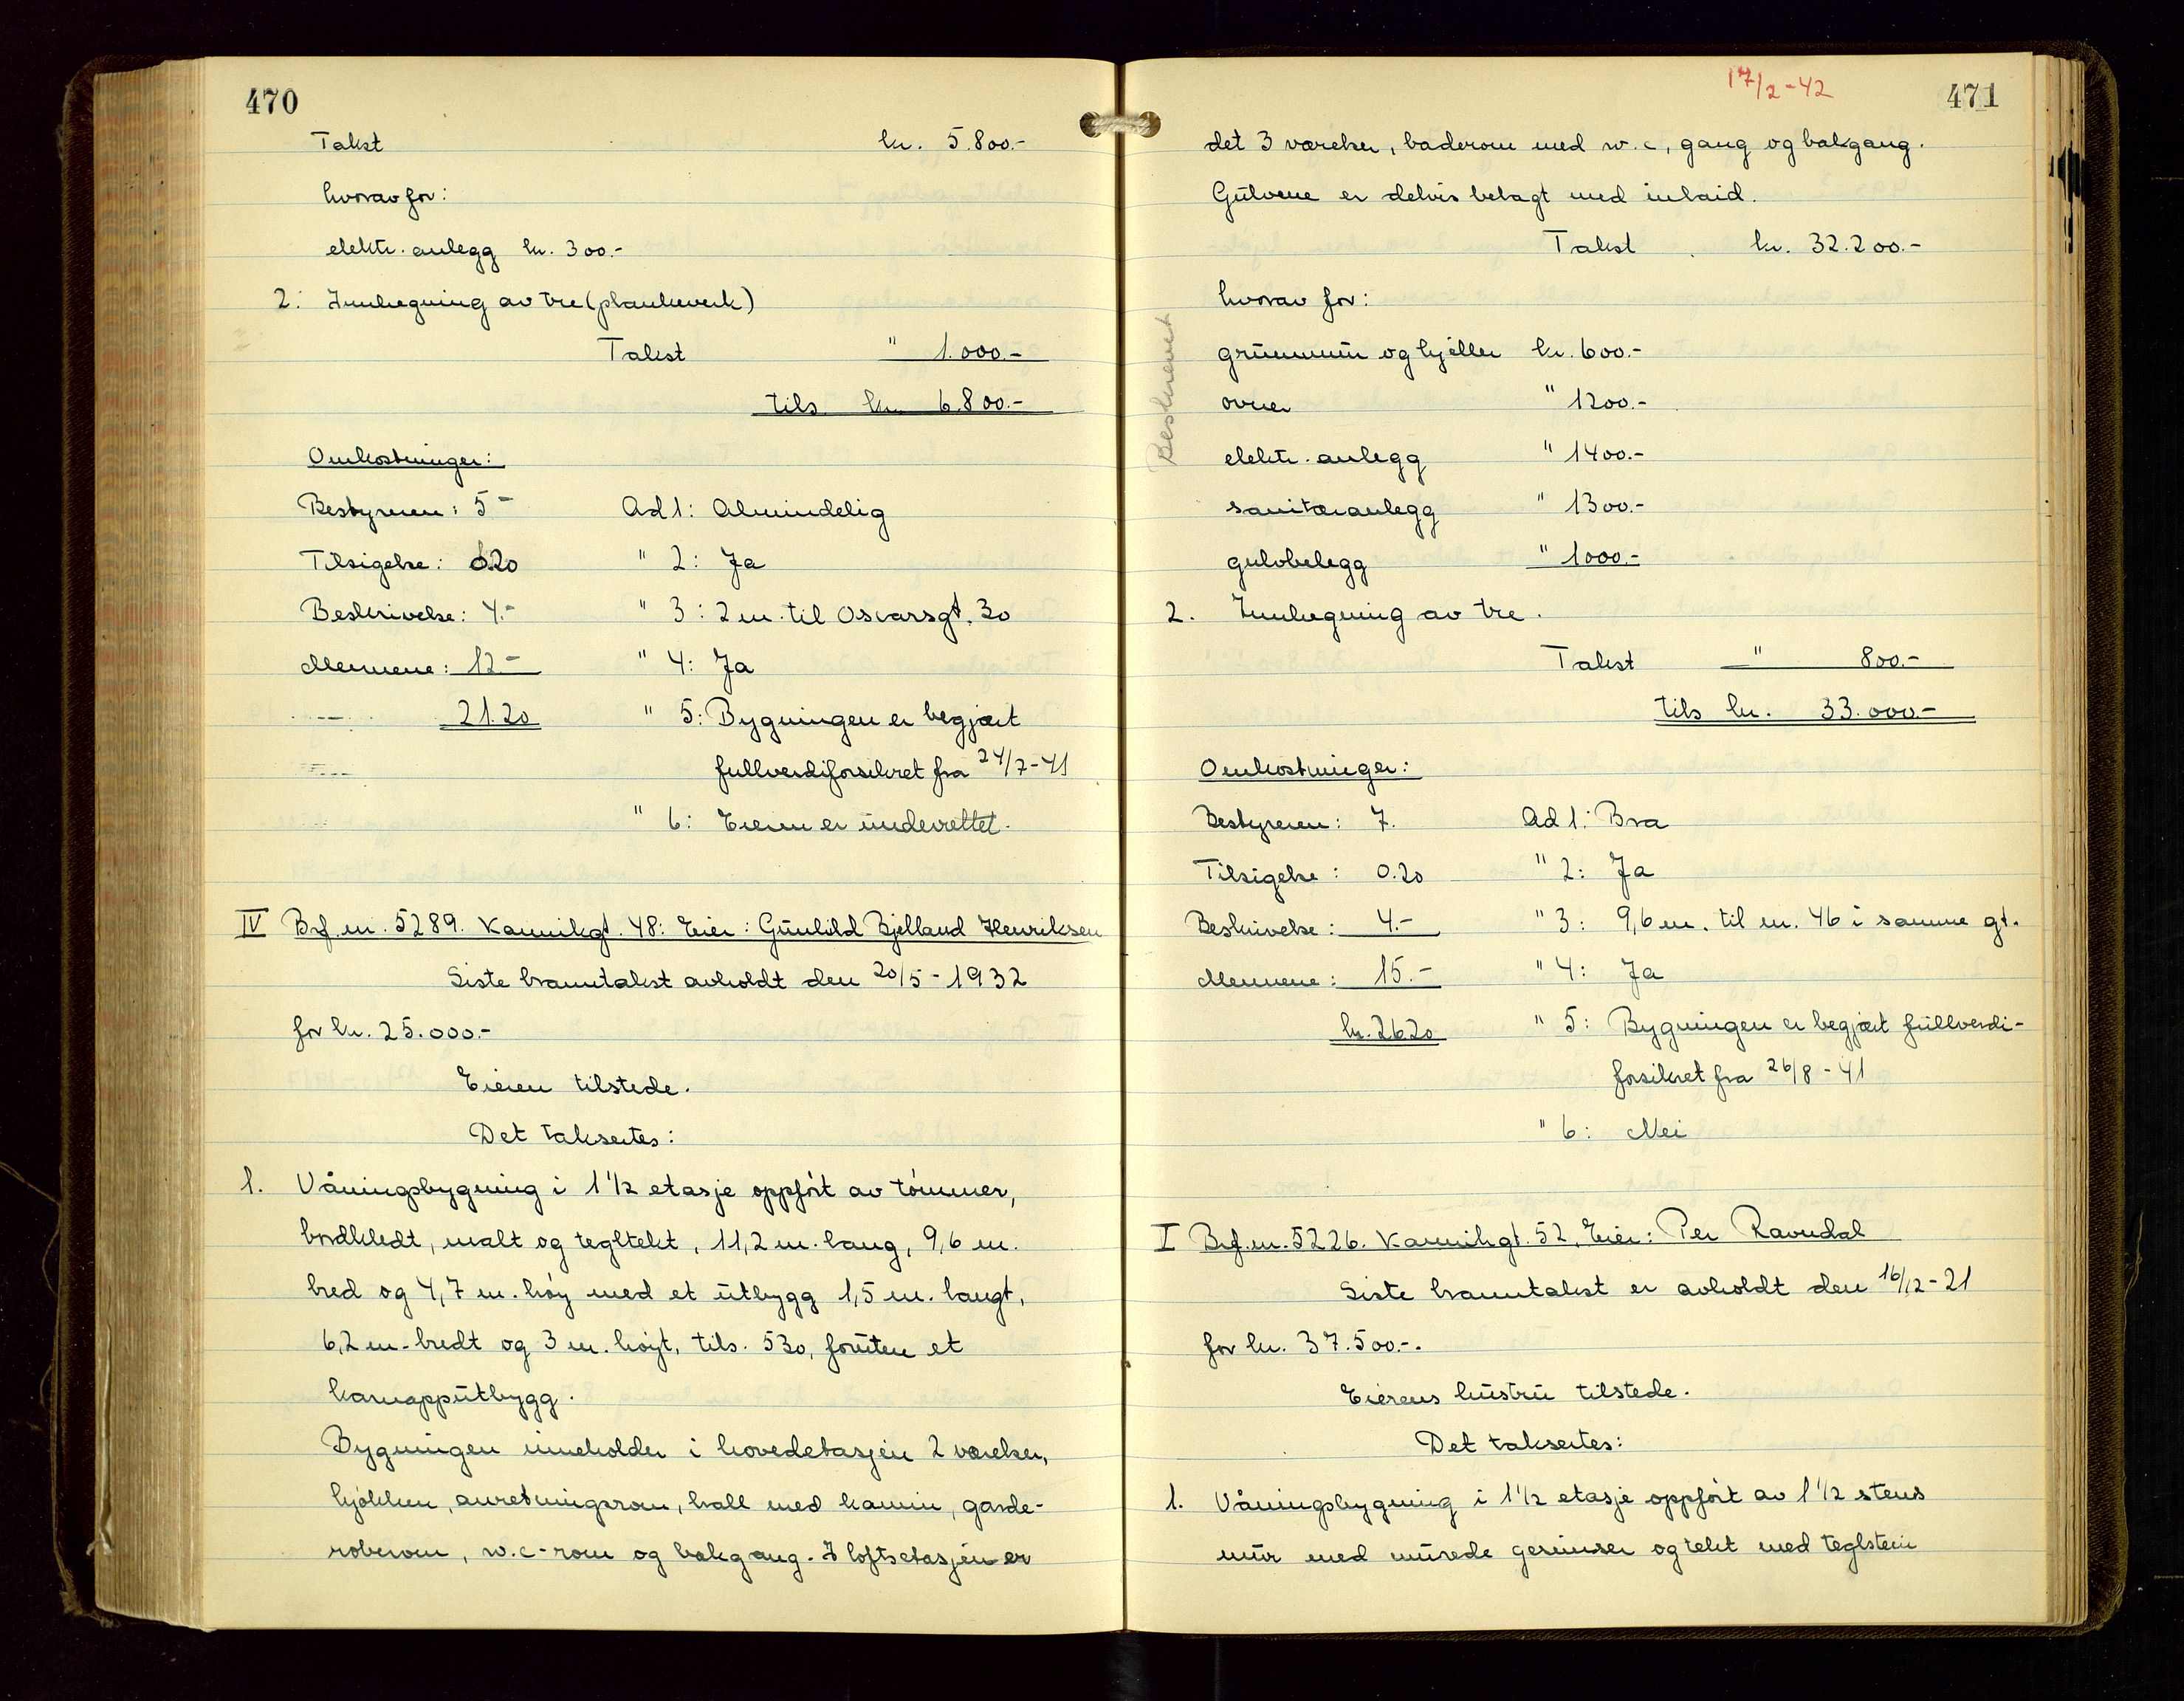 470
Takst kr. 5.800.-
hvorav for:
elektr. anlegg kr. 300.-
2. Innhegning av tre (plankeverk)
Takst " 1.000.-
tils kr 6.800.-
Omkostninger:
Bestyreren: 5- Ad 1: Almindelig
Tilsigelse: 0.20 " 2: Ja
Beskrivelse: 4.- " 3: 2 m. til Oscarsgt. 30
Mennene: 12.- " 4: Ja
21.20 " 5: Bygningen er begjært
fullverdiforsikret fra 24/7-41
" 6: Eieren er underrettet.
IV Brf. nr. 5289. Kannikgt. 48: Eier: Gunhild Bjelland Henriksen
Siste branntakst avholdt den 20/5-1932
for kr. 25.000.-
Eieren tilstede.
Det taksertes:
1. Våningsbygning i 1 1/2 etasje oppført av tømmer,
bordkledt, malt og tegltekt, 11,2 m. lang, 9,6 m.
bred og 4,7 m. høy med et utbygg 1,5 m. langt,
6,2 m. bredt og 3 m. høyt, tils. 530, foruten et
karnapputbygg.
Bygningen inneholder i hovedetasjen 2 værelser,
kjøkken, anretningsrom, hall med kamin, garde-
roberom, w.c-rom og bakgang. I loftsetasjen er
17/2-42
471
det 3 værelser, baderom med w.c, gang og bakgang.
Gulvene er delvis belagt med inlaid.
Takst kr. 32.200.-
hvorav for:
grunnmur og kjeller kr. 600.-
ovner " 1200.-
elektr. anlegg " 1400.-
sanitæranlegg " 1300.-
gulvbelegg " 1000.-
Beskrevet
2. Innhegning av tre.
Takst " 800.-
tils kr. 33.000.-
Omkostninger:
Bestyreren: 7. Ad 1: Bra
Tilsigelse: 0.20 " 2: Ja
Beskrivelse: 4.- " 3: 9,6 m. til nr. 46 i samme gt.
Mennene: 15.- " 4: Ja
kr. 26.20 " 5: Bygningen er begjært fullverdi-
forsikret fra 26/8-41
" 6: Nei
I Brf. nr. 5226. Kannikgt. 52, Eier: Per Ravndal
Siste branntakst er avholdt den 16/12-21
for kr. 37.500.-.
Eierens hustru tilstede.
Det taksertes:
1. Våningsbygning i 1 1/2 etasje oppført av 1 1/2 stens
mur med murede gesimser og tekt med teglstein